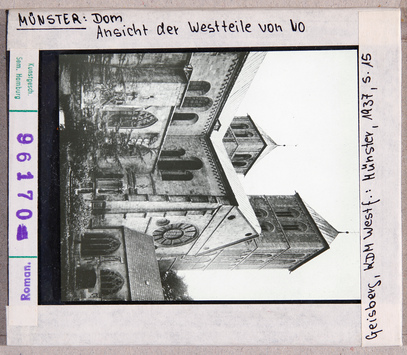 MÜNSTER: Dom
Ansicht der Westteile von NO
Kunstgesch.
Sem. Hamburg
96170
Roman.
Geisberg, KDM Westf.: Münster, 1937, S. 15